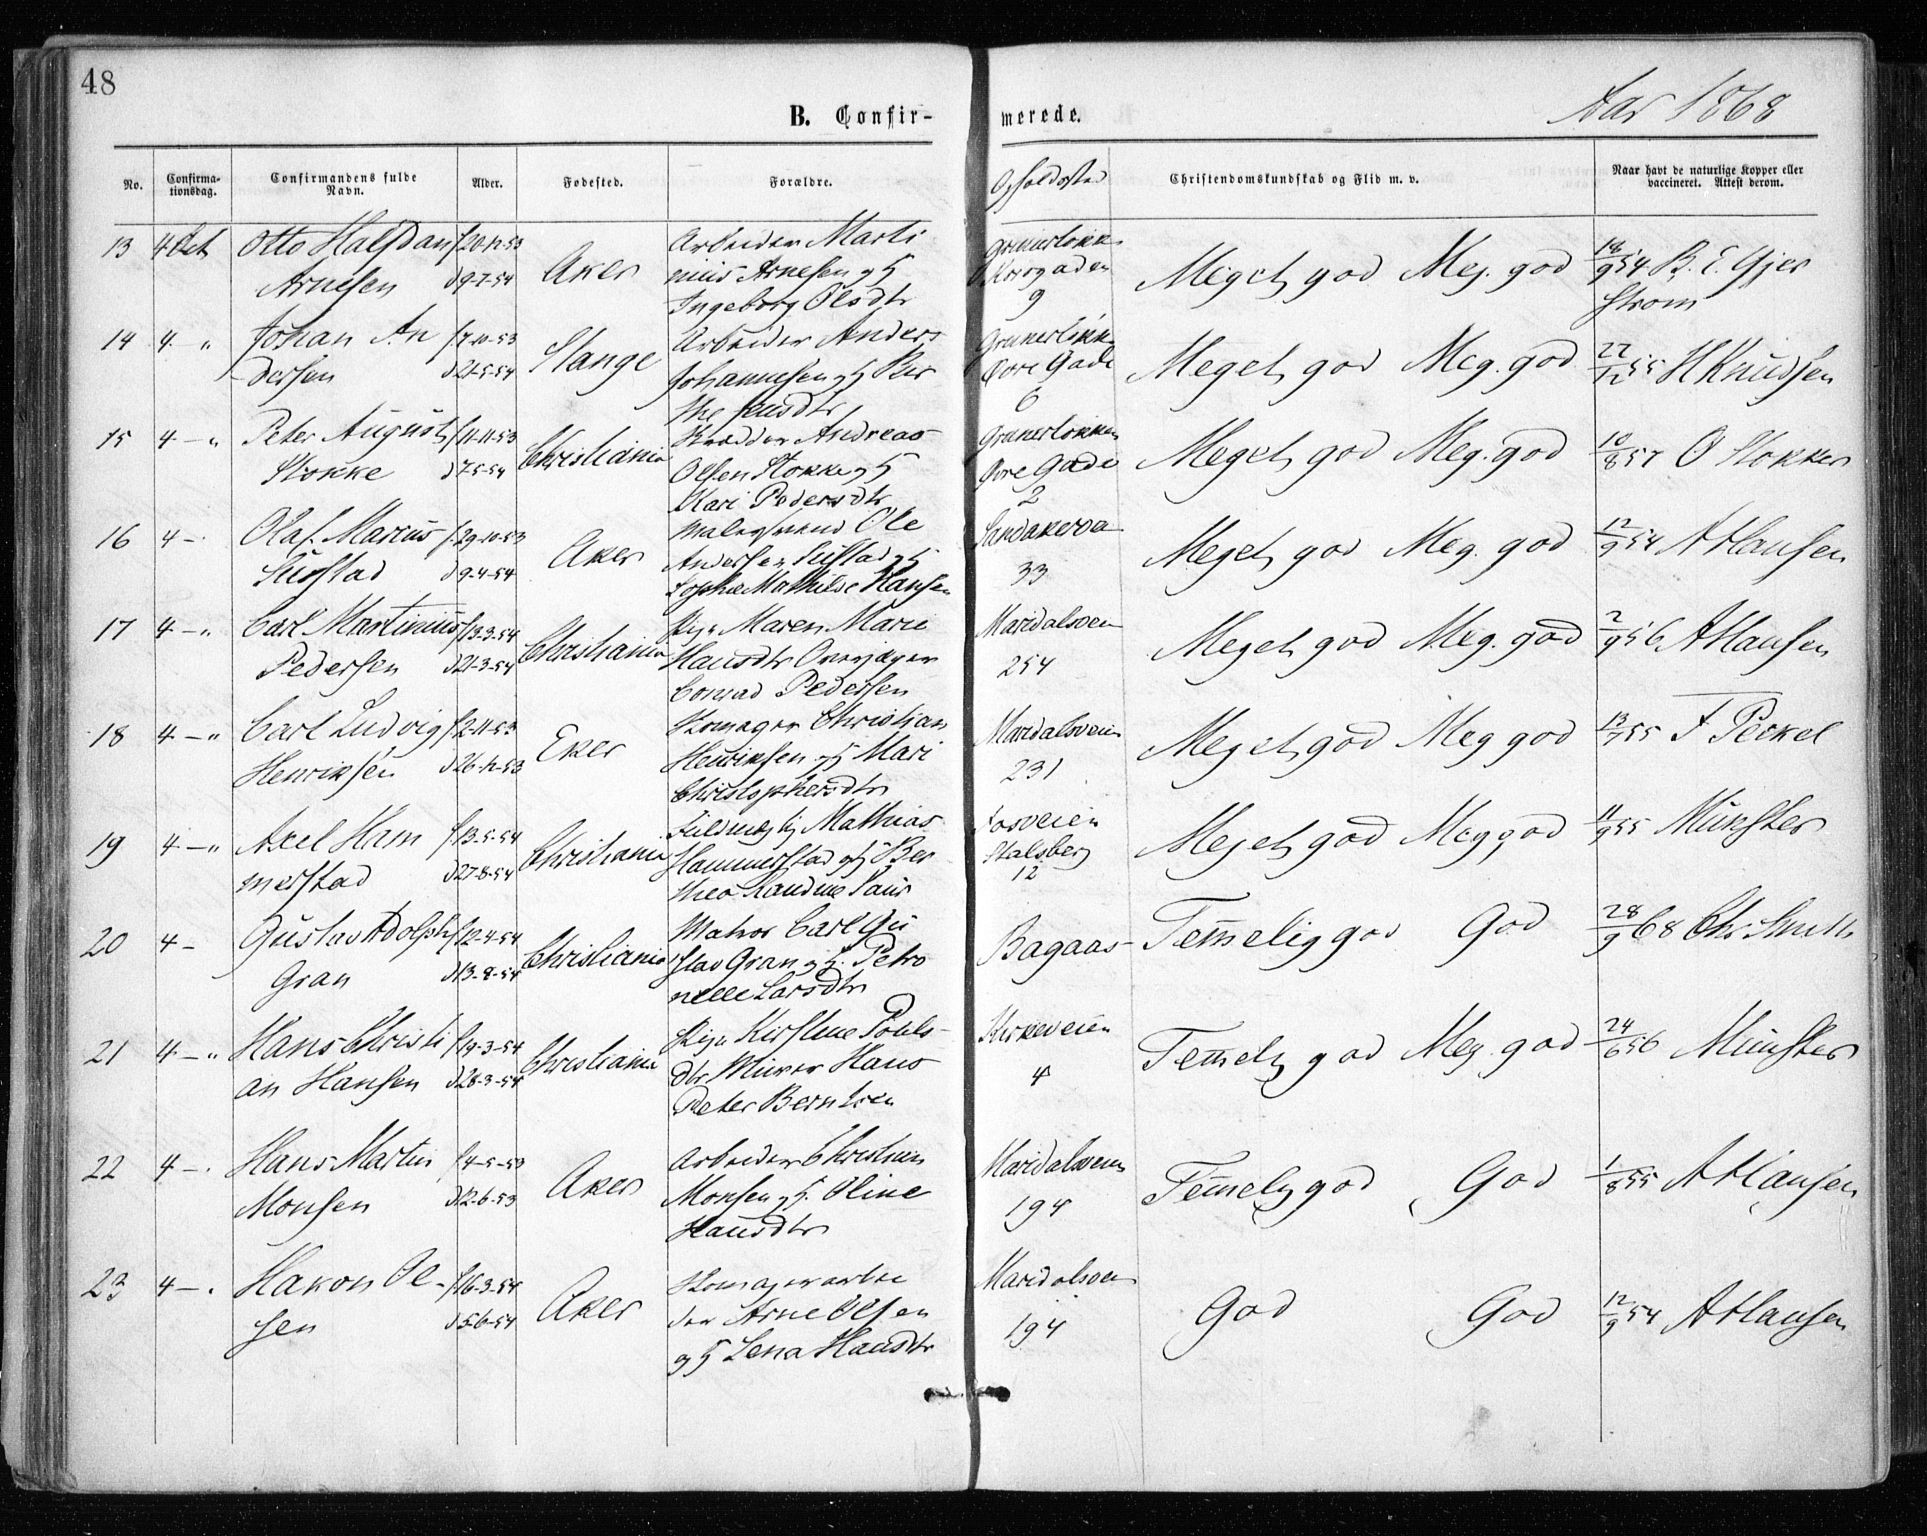 48
B. Confir-
merede.
Aar 1868
No.
Confirma-
tionsdag.
Confirmandens fulde
Navn.
Alder.
Fødested.
Forældre.
Opholdssted
Christendomskundskab og Flid m. v.
Naar havt de naturlige Kopper eller
vaccineret. Attest derom.
13 4 Oct Otto Halfdan f 20-12-53 Aker Arbeider Marti
Arnesen d 9-7-54 nius Arnesen og H
Ingeborg Olsdtr
Grünerløkk
Korsgaden
9
Meget god Meg. god 18/9 54 B. E. Gjer
strøm
14 4 " Johan An f 7-10-53 Stange Arbeider Anders
dersen d 21-5-54 Johannesen og H Ber
the Jensdtr
Grünerløkk
Øvre Gade
6
Meget god Meg. god 27/12 55 H Knudsen
15 4 — " Peter August f 11-11-53 Christiania Skrædder Andreas
Stokke d 7-5-54 Olsen Stokke og H
Kari Pedersdtr
Grünerløkken
Øvre Gade
2
Meget god Meg. god 10/8 57 O Stokker
16 4 — Olaf Marcus f. 29-10-53 Aker Malersvend Ole
d 9-4-54 Andersen og H
Sophie Mathilde Hansen
Sandakervei
33
Meget god Meg. god 12/9 54 A Hansen
17 4 — " Carl Martinius f 13-3-54 Christiania Pige Maren Marie
Pedersen d 21-3-54 Hansdtr
Conrad Pedersen
Maridalsveien
254
Meget god Meg. god 2/9 56 A Hansen
18 4 — " Carl Ludvig f 2-11-53 Eker Skomager Christian
Henriksen d 26-12-53 Henriksen og H Mari
Christophersdtr
Maridalsveien
231
Meget god Meg god 13/7 55 F Peckel
19 4 — " Axel Ham f 13-5-54 Christiania Fuldmægtig Mathias
merstad d 27-8-54 Hammerstad og H Ber
12
Meget god Meg god 11/9 55 Münster
20 4 — Gustav Adolph f 12-4-54 Christiania Matros Carl Gu
Gran d 13-8-54 stav Gran og H. Petro
nelle Larsdtr
Bagaas
Temmelig god God 28/9 68 Chr Smith
21 4 — " Hans Christi f 19-3-54 Christiania Pige Kirstine Pouls
an Hansen d 28-3-54 dtr Murer Hans
Peter Berntsen
Kirkeveien
4
Temmelig god Meg. god 24/6 56 Münster
22 4 — Hans Martin f 4-5-53 Aker Arbeider Christian
Monsen d 12-6-53 Monsen og H. Oline
Hansdtr
Maridalsveien
194
Temmelig god God 1/8 55 A Hansen
23 4 — Hakon Ol- f 16-3-54 Aker Skomagerarbei
sen d 5-6-54 der Arne Olsen
og H Lena Hansdtr
Maridalsveien
194
God God 12/9 54 A Hansen